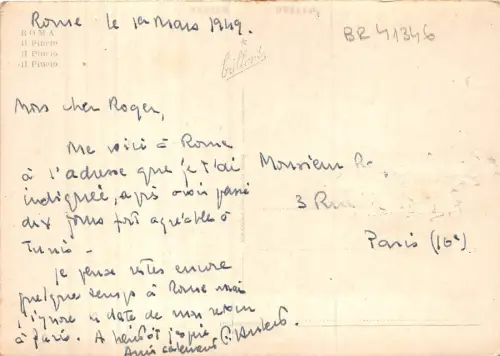 Rome le 1er Mars 1949.
BR 41346
ROMA
Il Pincio
Il Pincio
Il Pincio
brillante
Mon cher Roger,
Me voici à Rome
à l'adresse que je t'ai
indiquée, après avoir passé
dix jours fort agréables à
Tunis -
Je pense rester encore
quelque temps à Rome mais
j'ignore la date de mon retour
à Paris. A bientôt
Amicalement
Monsieur R
3 Rue
Paris (16e)